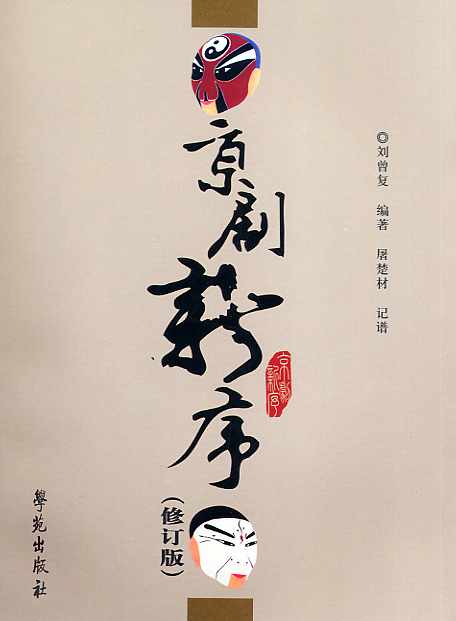 京剧新序
(修订版)
◎刘曾复 编著 屠楚材 记谱
京剧新序
學苑出版社